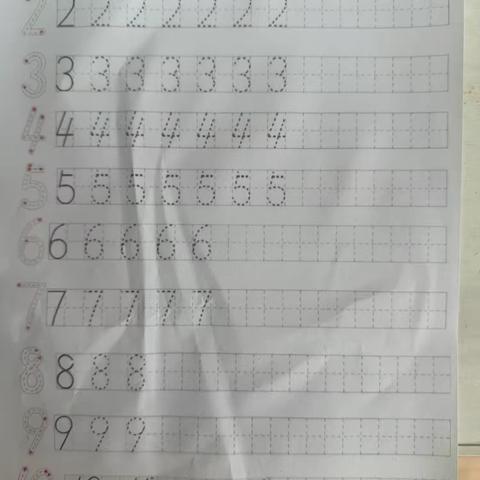 2 2 2 2 2 2 2 2
3 3 3 3 3 3 3 3
4 4 4 4 4 4 4 4
5 5 5 5 5 5 5 5
6 6 6 6 6 6
7 7 7 7 7 7
8 8 8 8
9 9 9 9